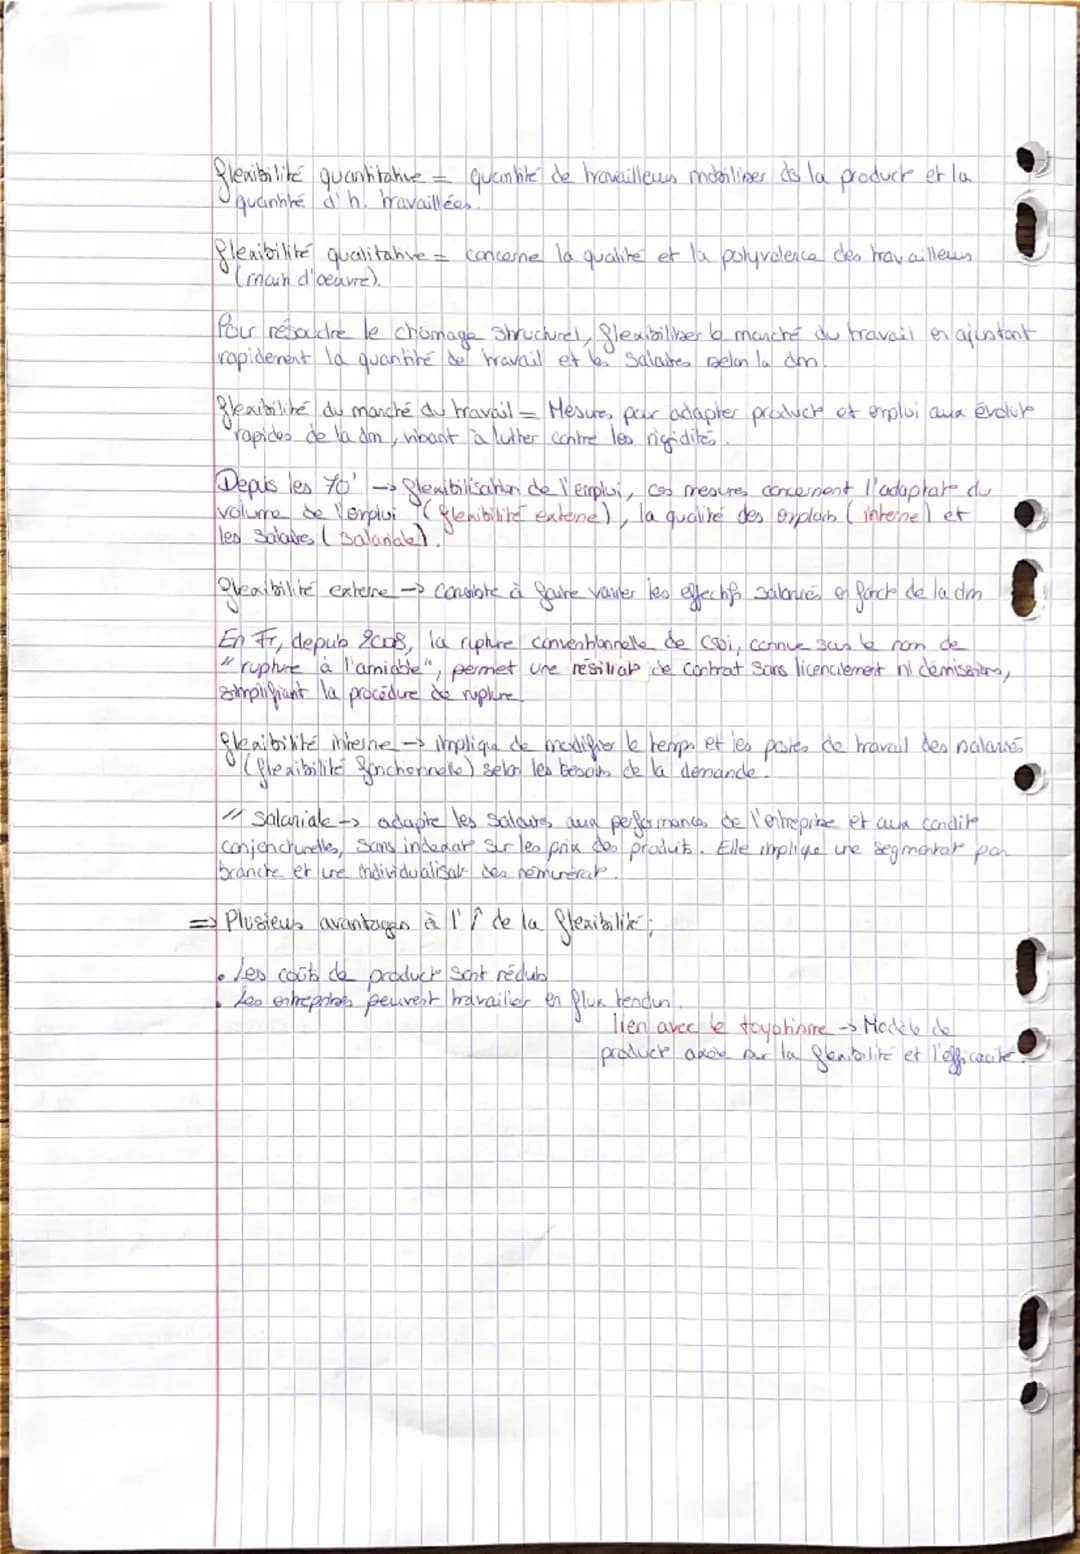 flexibilité quantitative = quantité de travailleurs mobiliser ds la product° et la
quantité d'h. travaillées.
flexibilité qualitative = concerne la qualité et la polyvalence des travailleurs
(main d'oeuvre).
Pour résoudre le chômage structurel, flexibiliser le marché du travail en ajustant
rapidement la quantité de travail et les salaires selon la dm.
flexibilité du marché du travail = Mesures pour adapter product° et emploi aux évolut°
rapides de la dm, visant à lutter contre les rigidités.
Depuis les 70' -> flexibilisation de l'emploi, ces mesures concernent l'adaptat° du
volume de l'emploi (flexibilité externe), la qualité des emplois (interne) et
les salaires (salariale).
flexibilité externe -> consiste à faire varier les effectifs salariés en fonct° de la dm
En Fr, depuis 2008, la rupture conventionnelle de CDI, connue sous le nom de
"rupture à l'amiable", permet une résiliat° de contrat sans licenciement ni démissions,
simplifiant la procédure de rupture.
flexibilité interne -> implique de modifier le temps et les postes de travail des salariés
(flexibilité fonctionnelle) selon les besoins de la demande.
// salariale -> adapte les salaires aux performances de l'entreprise et aux condit°
conjoncturelles, sans indexat° sur les prix des produits. Elle implique une segmentat° par
branche et une individualisat° des rémunérat°.
=> Plusieurs avantages à l'↑ de la flexibilité ;
• Les coûts de product° sont réduits
• Les entreprises peuvent travailler en flux tendus.
lien avec le toyotisme -> Modèle de
product° axée sur la flexibilité et l'efficacité.